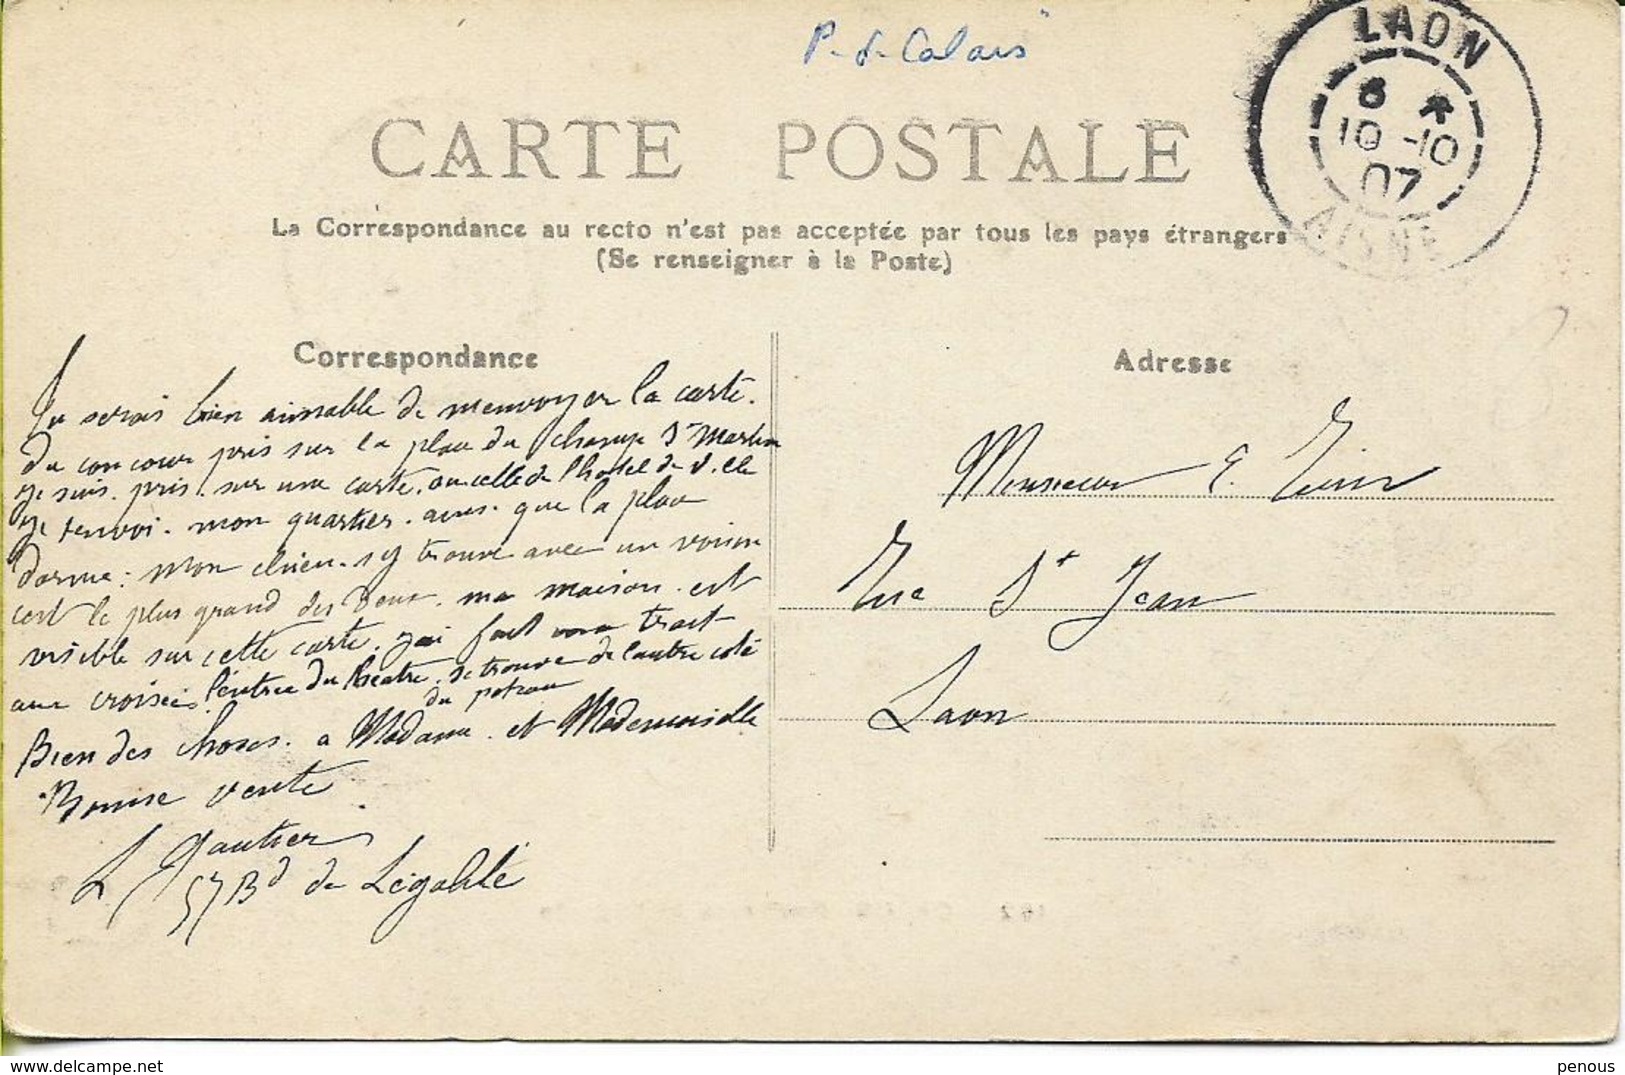 P-d-Calais
LAON
6
10-10
07
AISNE
CARTE POSTALE
La Correspondance au recto n'est pas acceptée par tous les pays étrangers
(Se renseigner à la Poste)
Correspondance
Adresse
serais bien aimable de menvoyer la carte.
Du concour pris sur la place du champ St Martin
je suis pris sur une carte. ou celle de l'hotel de ville
je renvoi. mon quartier. ainsi que la place
darme: mon chien. sy trouve avec un voisin
cest le plus grand des deux. ma maison est
visible sur cette carte. jai fait une trait
aux croisées. l'entrée du théatre. se trouve de lautre coté
du poteau
Bien des choses. a Madame et Mademoiselle
Bonne vente
L Gautier
57 Bd de Légalité
Monsieur E.
Rue St Jean
Laon
penous